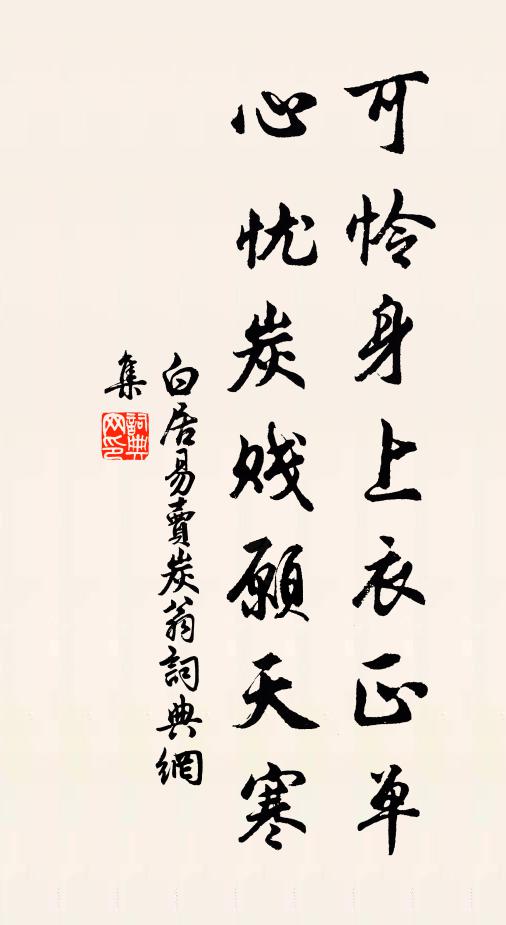 可怜身上衣正单
心忧炭贱愿天寒
白居易賣炭翁詞典網
集
詞典
网印